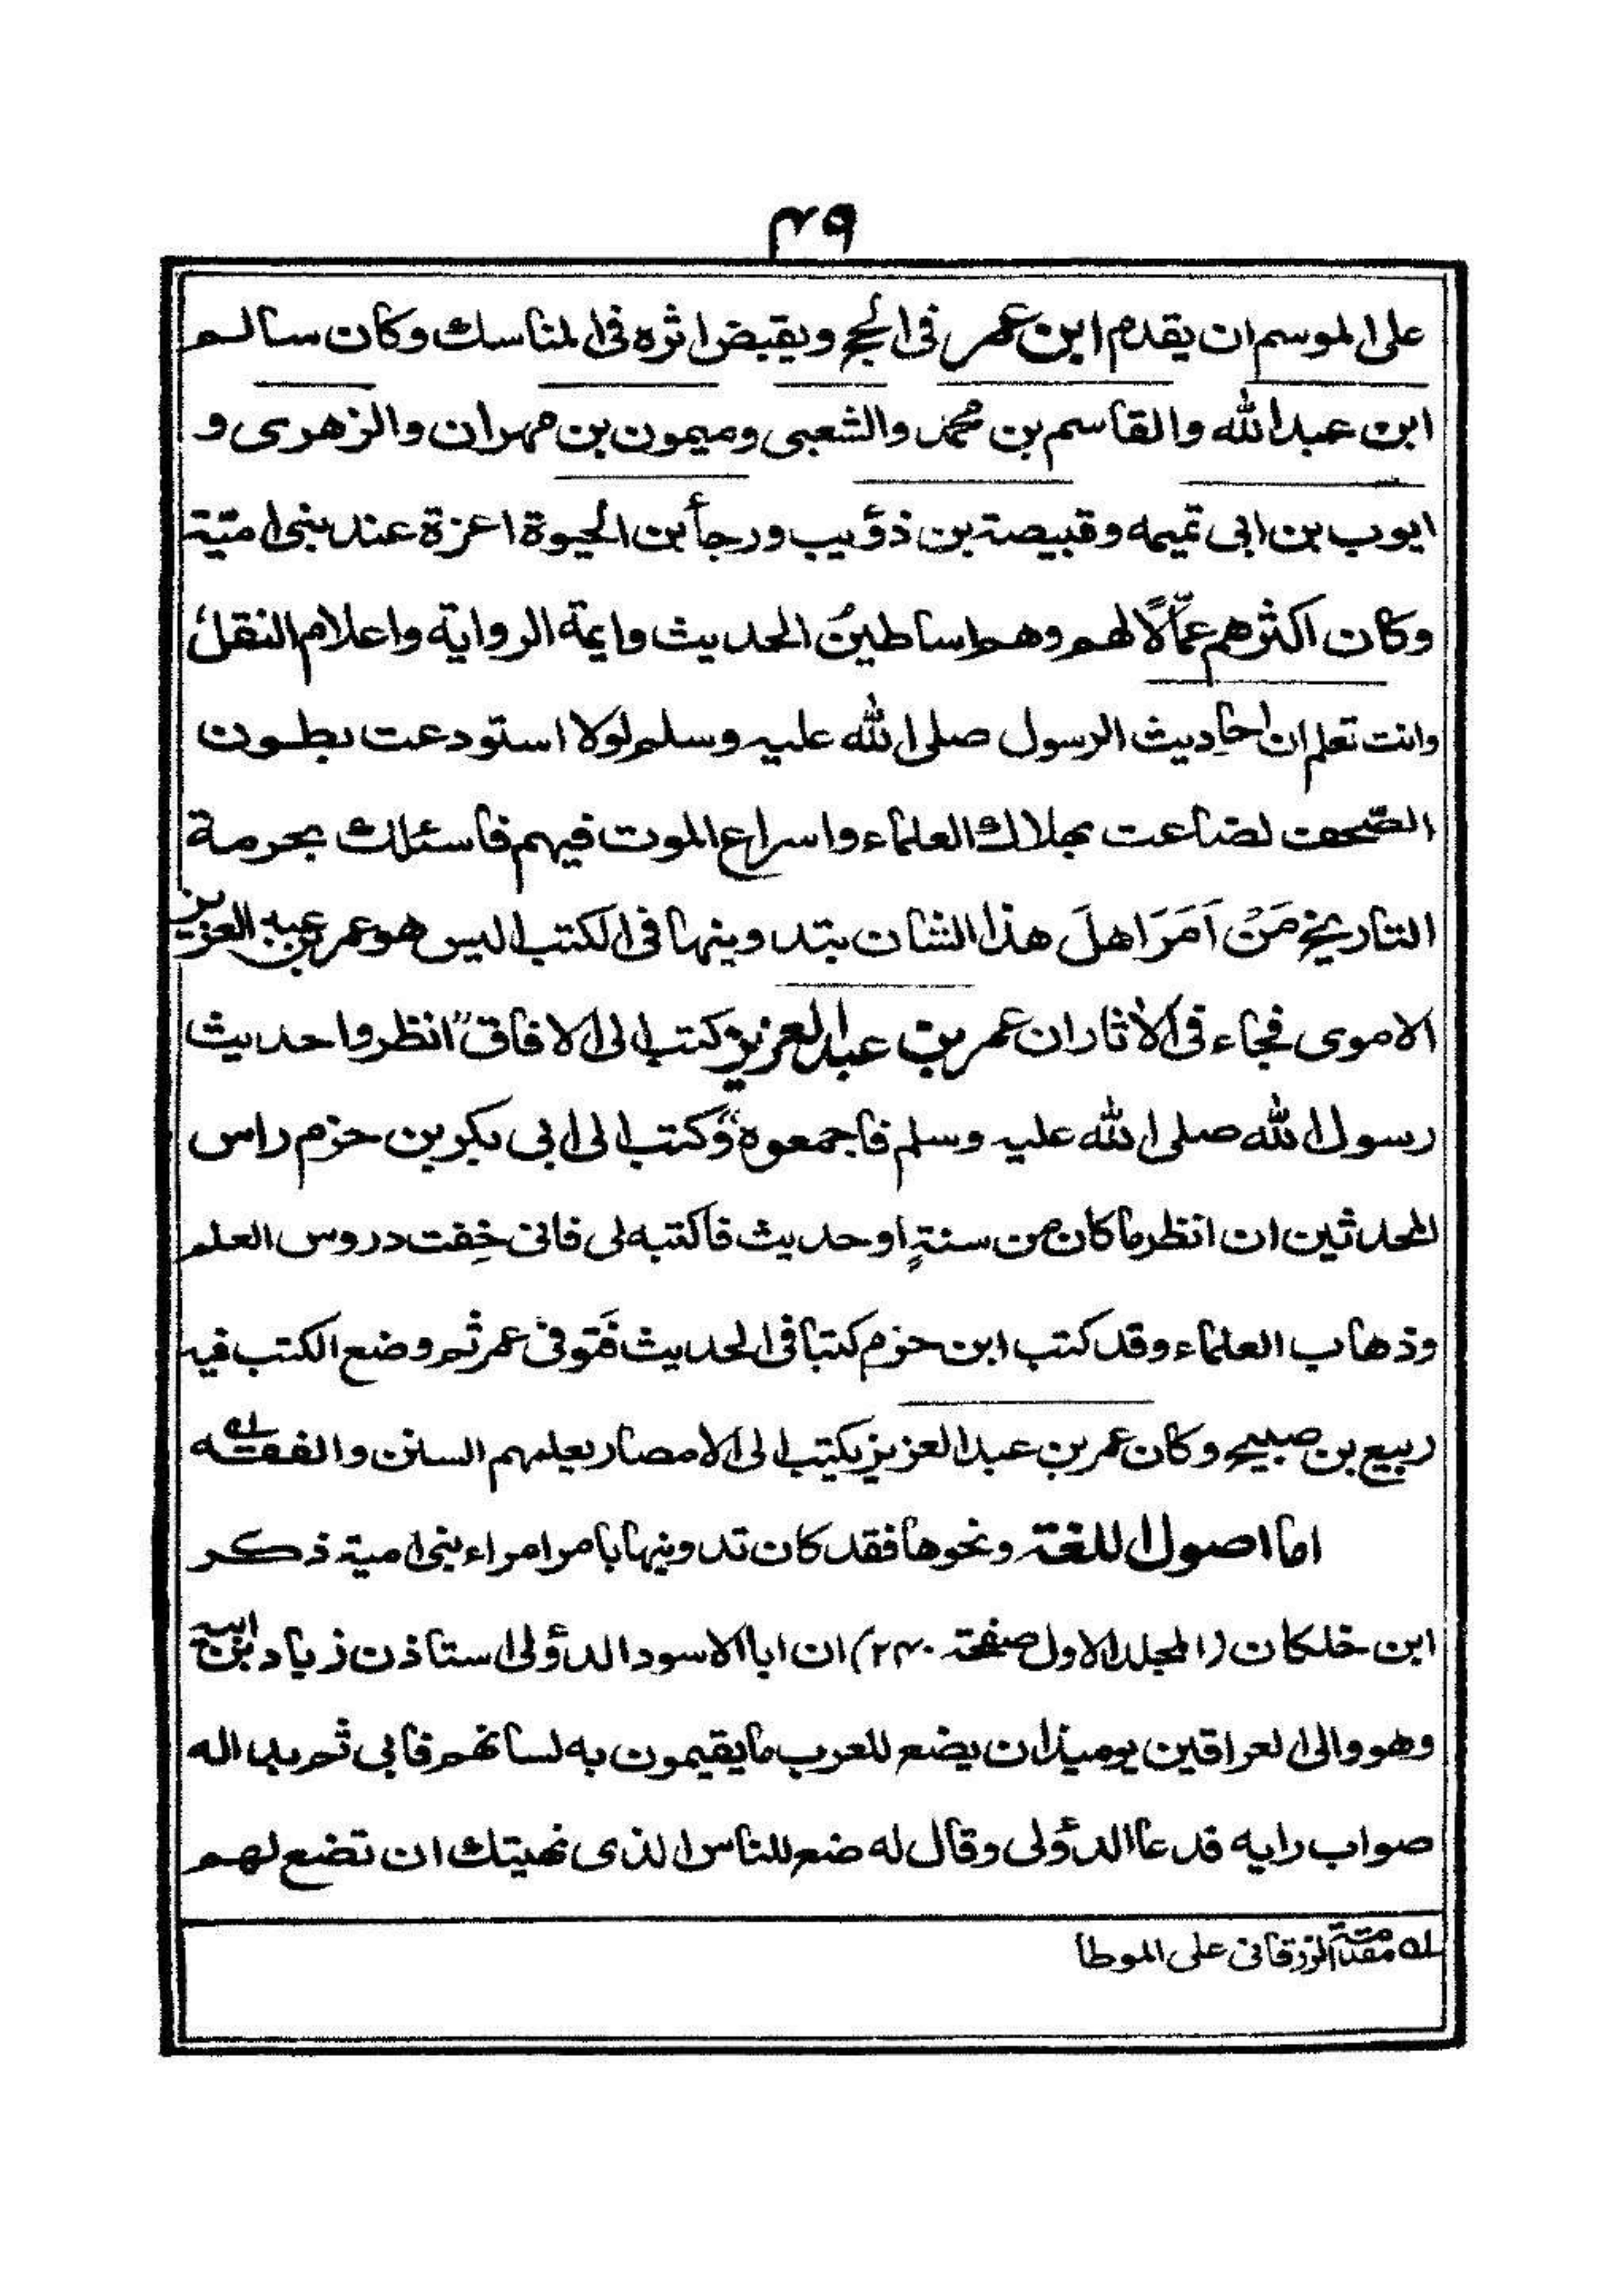 ۴۹
على الموسم ان يقدم ابن عمر فى الحج ويقبض اثره فى المناسك وكان سالم
ابن عبدالله والقاسم بن محمد والشعبى وميمون بن مهران والزهرى و
ايوب بن ابى تميمه وقبيصة بن ذؤيب ورجأ بن الحيوة اعزة عند بنى اميّة
وكان اكثرهم عمّالًا لهم وهم اساطينُ الحديث وايمة الرواية واعلام النقل
وانت تعلم ان احاديث الرسول صلى الله عليه وسلم لولا استودعت بطون
الصّحف لضاعت بهلاك العلماء واسراع الموت فيهم فاسئلك بحرمة
التاريخ مَنْ اَمَرَ اهلَ هذا الشان بتدوينها فى الكتب اليس هو عمر بن عبد العزيز
الاموى فجاء فى الأثار ان عمر بن عبد العزيز كتب الى الافاق "انظروا حديث
رسول الله صلى الله عليه وسلم فاجمعوه" وكتب الى ابى بكر بن حزم راس
المحدثين ان انظر ما كان من سنةٍ او حديث فاكتبه لى فانى خِفت دروس العلم
وذهاب العلماء وقد كتب ابن حزم كتبا فى الحديث فَتوفى عمر ثم وضع الكتب فيه
ربيع بن صبيح وكان عمر بن عبد العزيز يكتب الى الامصار يعلمهم السنن والفقه لـه
اما اصول اللغة ونحوها فقد كان تدوينها بامر امراء بنى امية ذكر
ابن خلكان (المجلد الاول صفحة ۲۴۰) ان ابا الاسود الدؤلى استاذن زياد ابن ابيه
وهو والى العراقين يوميذ ان يضع للعرب ما يقيمون به لسانهم فابى ثم بدا له
صواب رايه فدعا الدؤلى وقال له ضع للناس الذى نهيتك ان تضع لهم
لـه مقدمة الزرقانى على الموطا